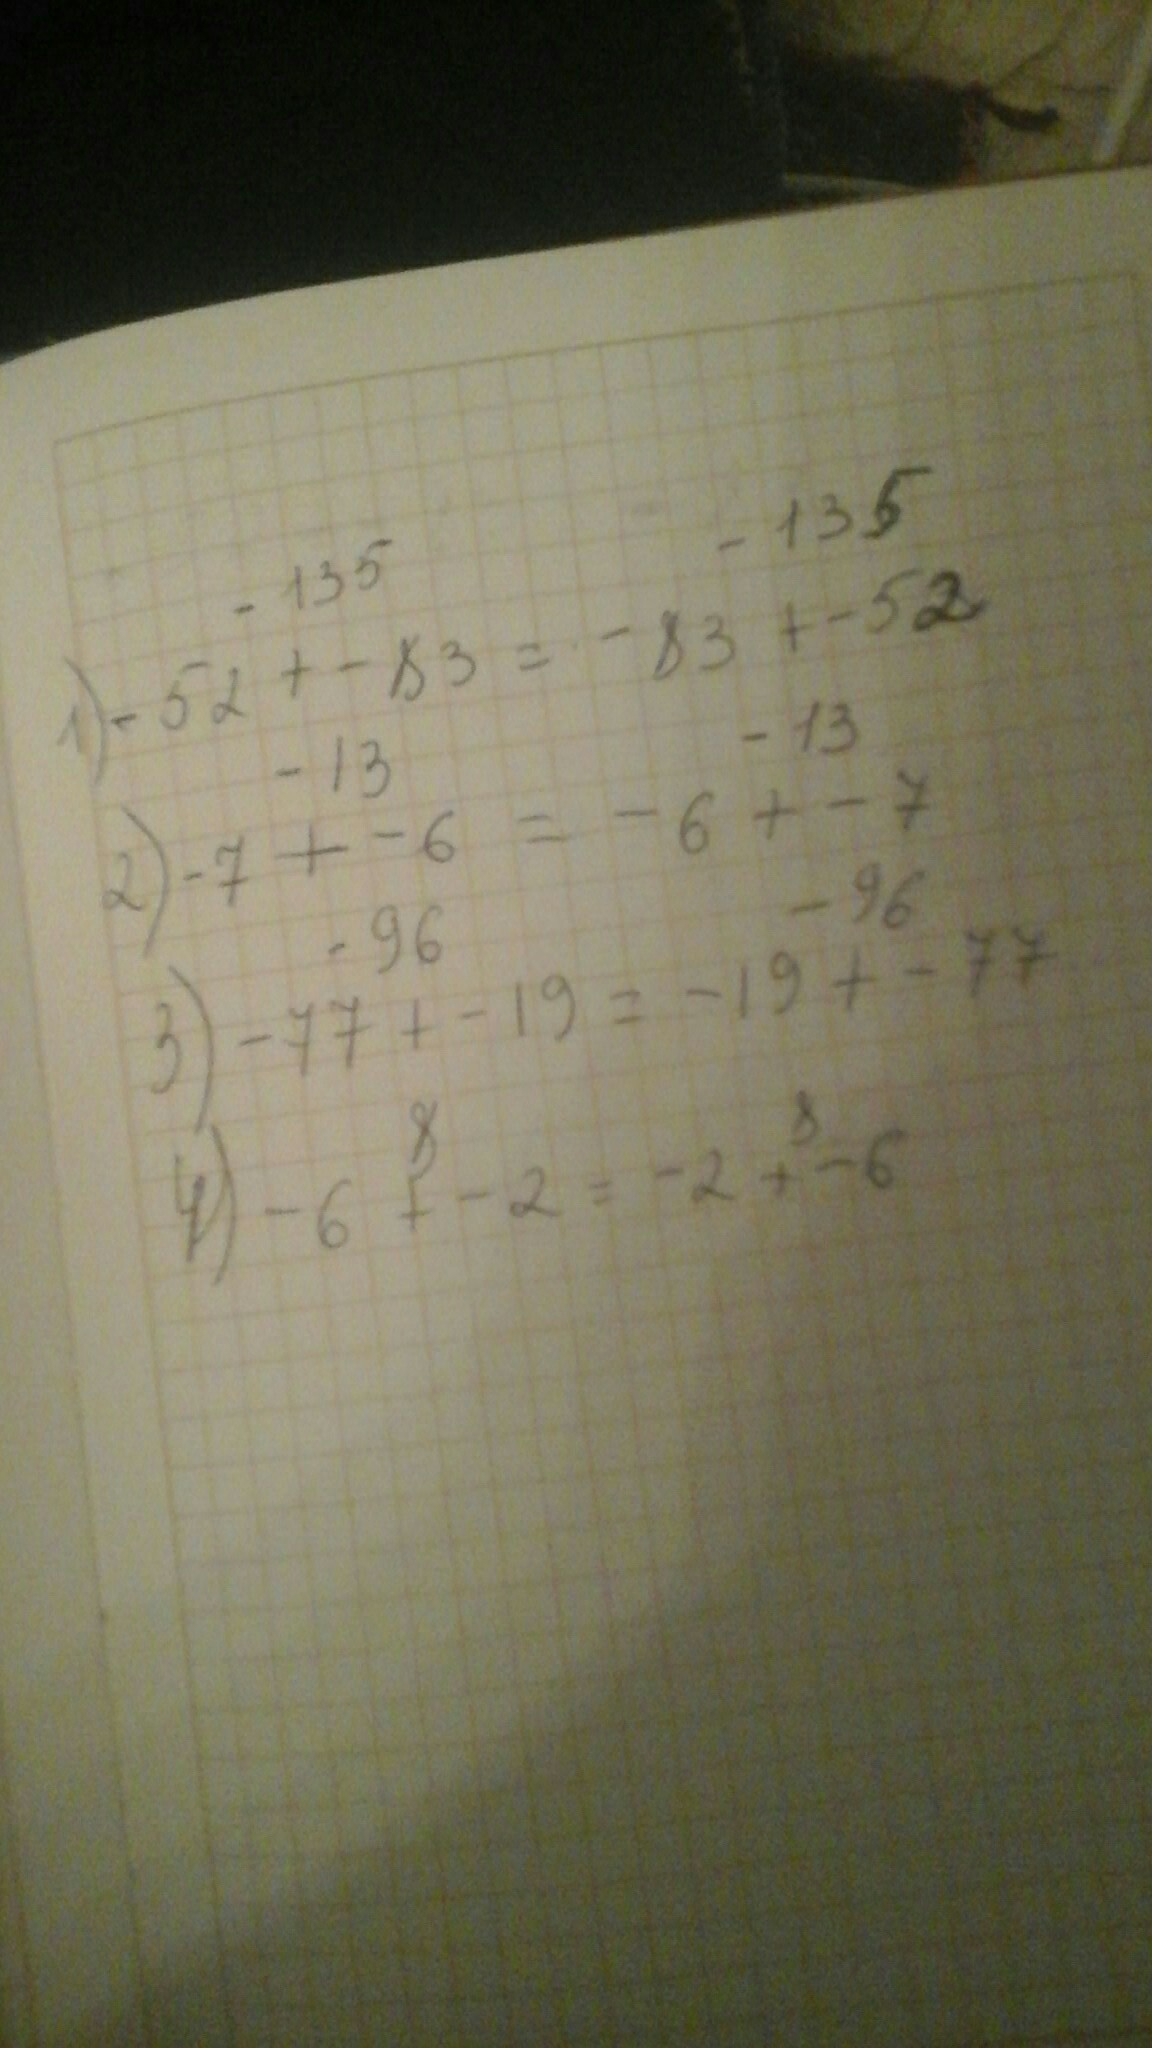 - 135 - 135
1) - 52 + - 83 = - 83 + - 52
- 13 - 13
2) - 7 + - 6 = - 6 + - 7
- 96 - 96
3) - 77 + - 19 = - 19 + - 77
8 8
4) - 6 + - 2 = - 2 + - 6